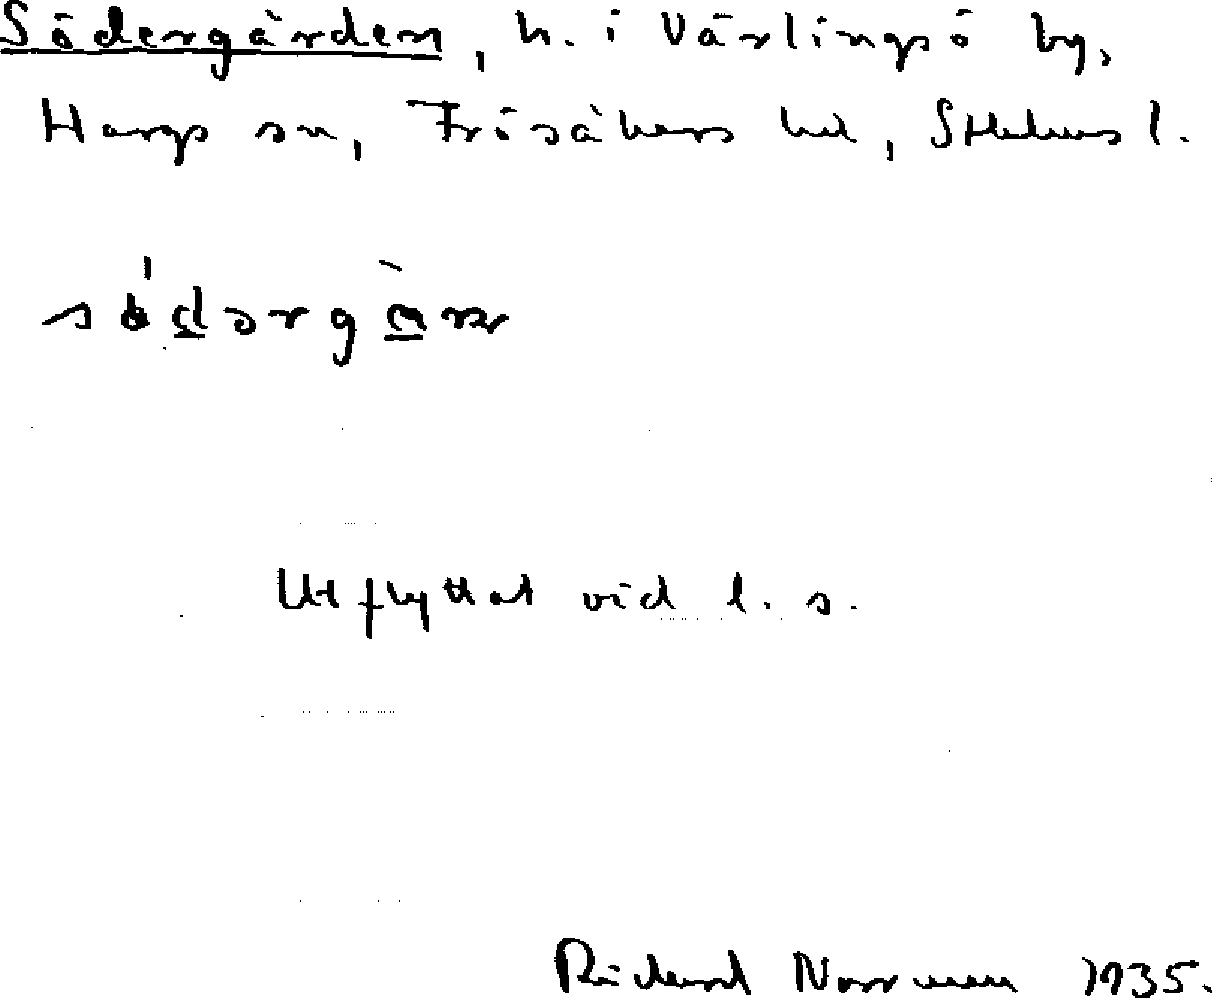 Södergården, h. i Värlingsö by,
Hargs sn, Frösåkers hd, Sthlms l.
södərgàɳ
Utflyttat vid l. s.
Rickard Norrman 1935.